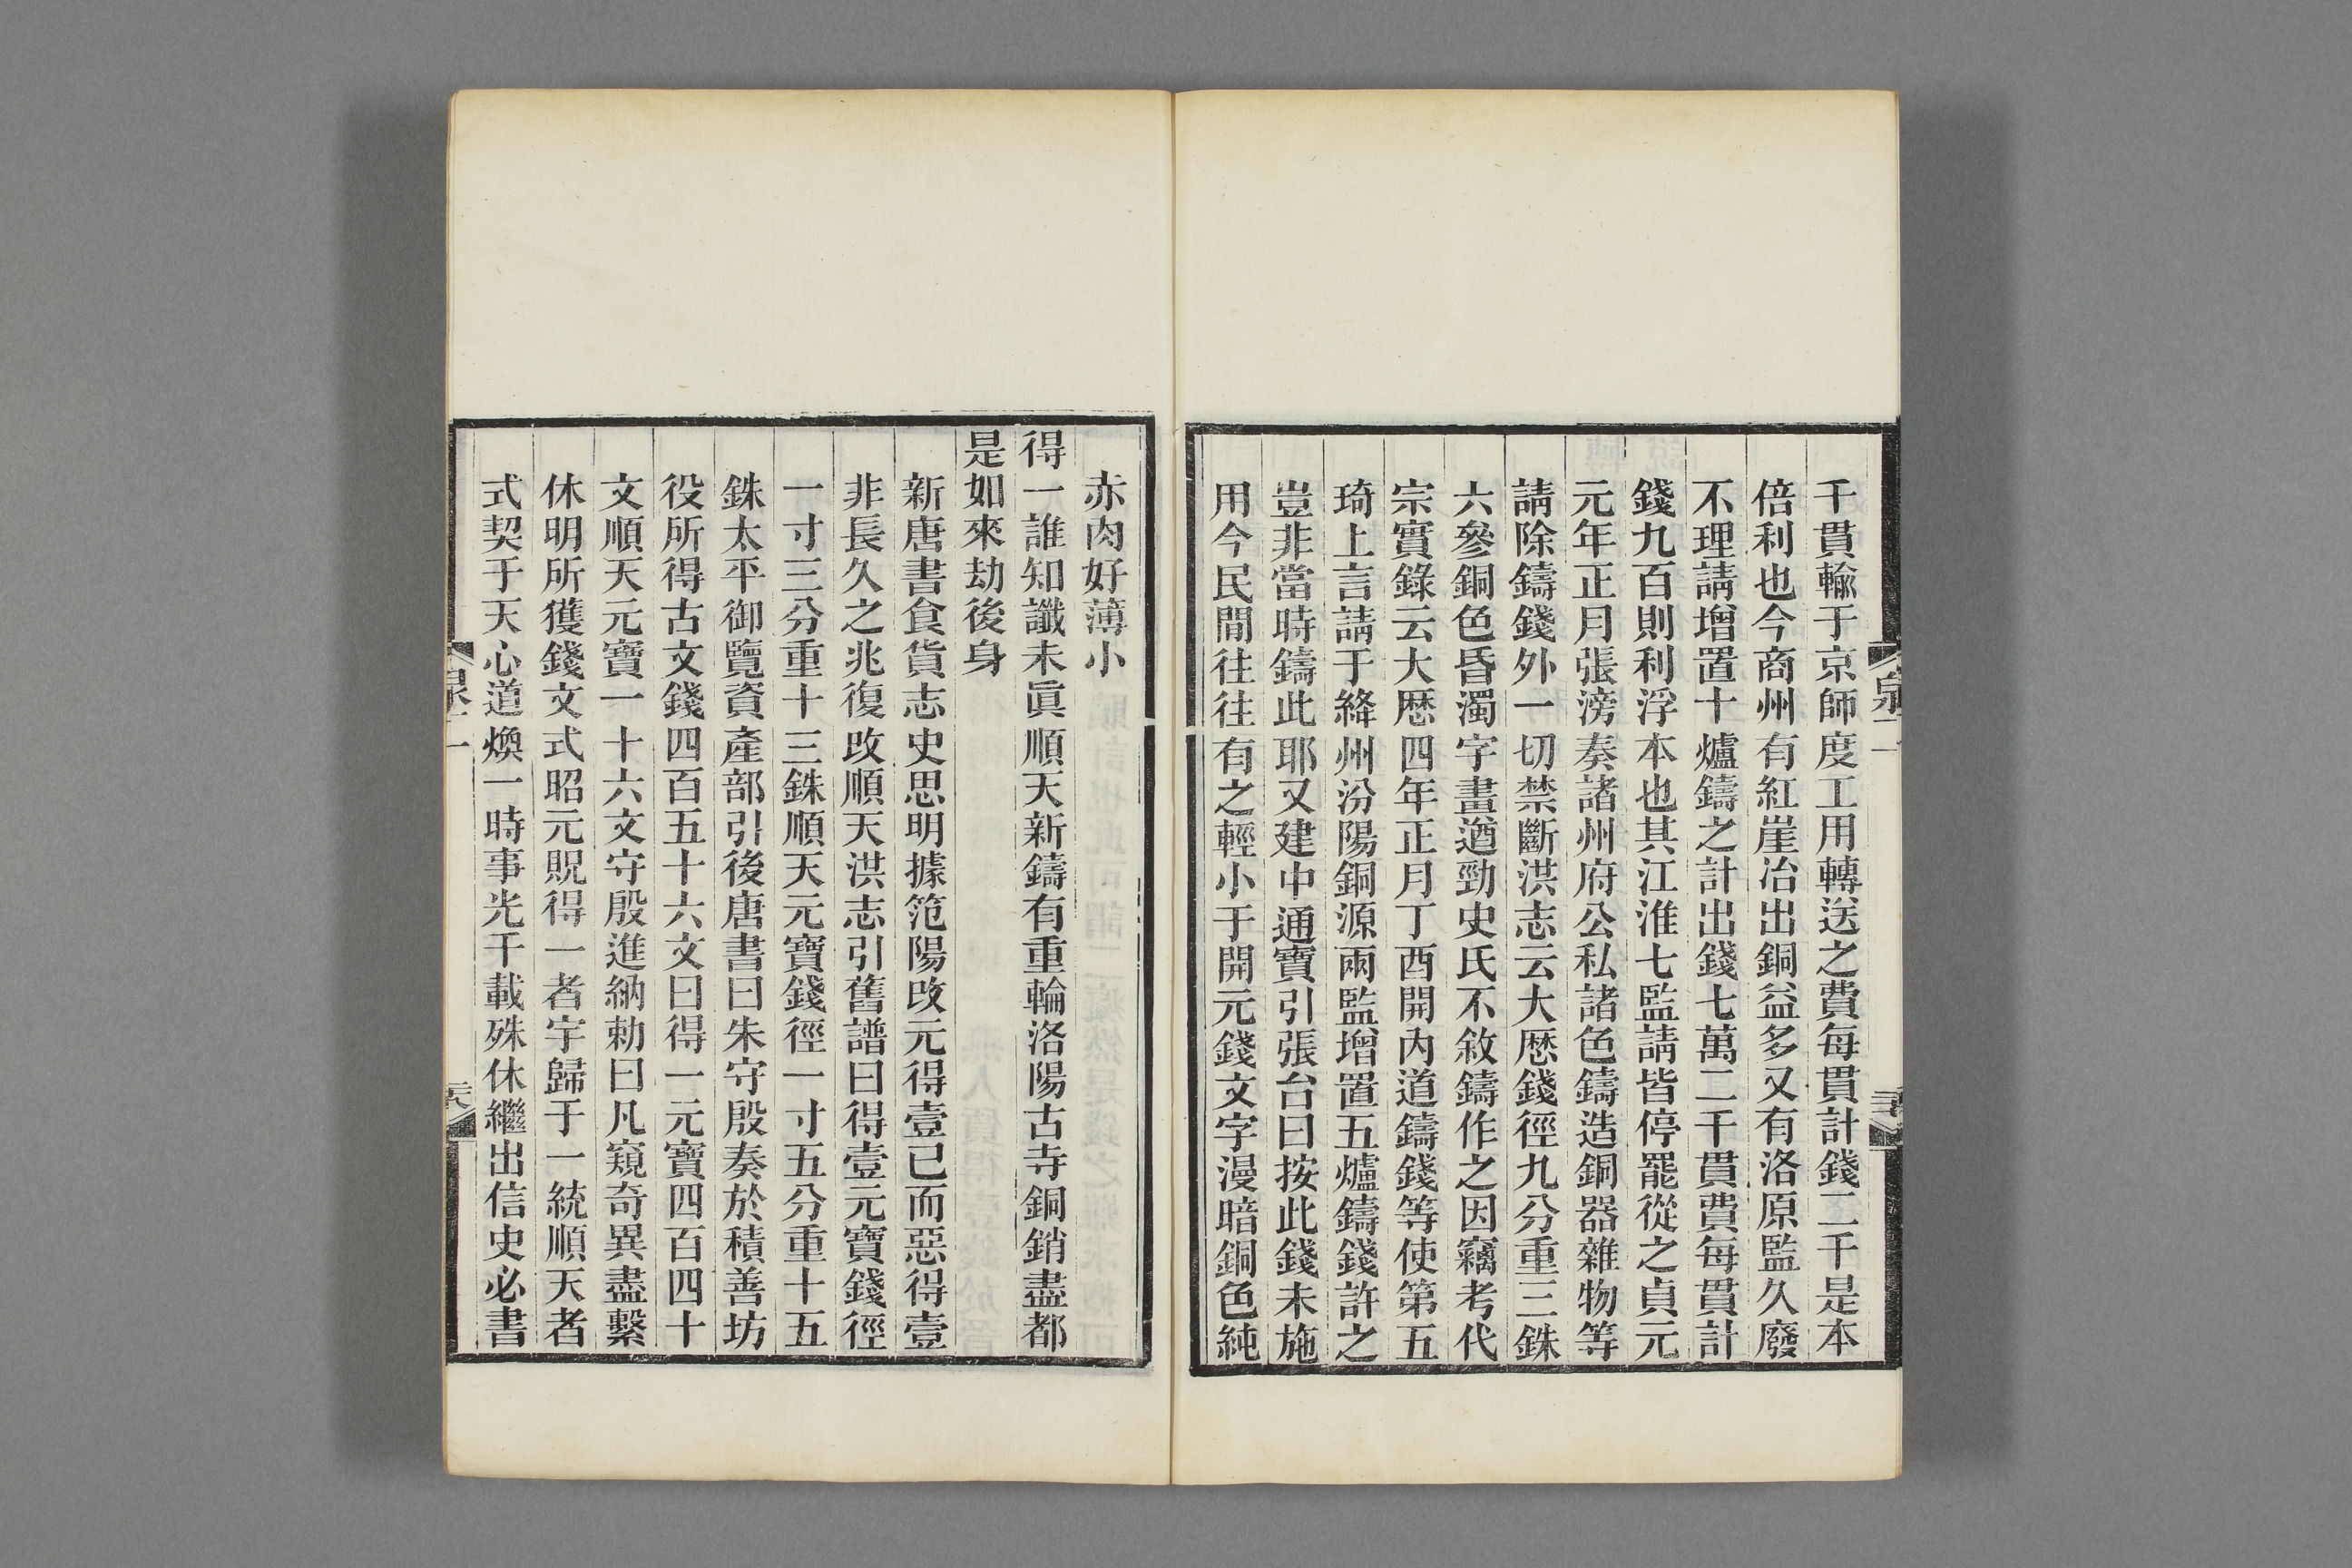 千貫輸于京師度工用轉送之費每貫計錢二千是本
倍利也今商州有紅崖冶出銅益多又有洛原監久廢
不理請增置十爐鑄之計出錢七萬二千貫費每貫計
錢九百則利浮本也其江淮七監請皆停罷從之貞元
元年正月張滂奏諸州府公私諸色鑄造銅器雜物等
請除鑄錢外一切禁斷洪志云大厯錢徑九分重三銖
六參銅色昏濁字畫遒勁史氏不敘鑄作之因竊考代
宗實錄云大厯四年正月丁酉開內道鑄錢等使第五
琦上言請于絳州汾陽銅源兩監增置五爐鑄錢許之
豈非當時鑄此耶又建中通寶引張台曰按此錢未施
用今民閒往往有之輕小于開元錢文字漫暗銅色純
赤肉好薄小
得一誰知讖未眞順天新鑄有重輪洛陽古寺銅銷盡都
是如來劫後身
新唐書食貨志史思明據笵陽改元得壹已而惡得壹
非長久之兆復改順天洪志引舊譜曰得壹元寶錢徑
一寸三分重十三銖順天元寶錢徑一寸五分重十五
銖太平御覽資產部引後唐書曰朱守殷奏於積善坊
役所得古文錢四百五十六文曰得一元寶四百四十
文順天元寶一十六文守殷進納勅曰凡窺奇異盡繫
休明所獲錢文式昭元貺得一者宇歸于一統順天者
式契于天心道煥一時事光千載殊休繼出信史必書
泉二